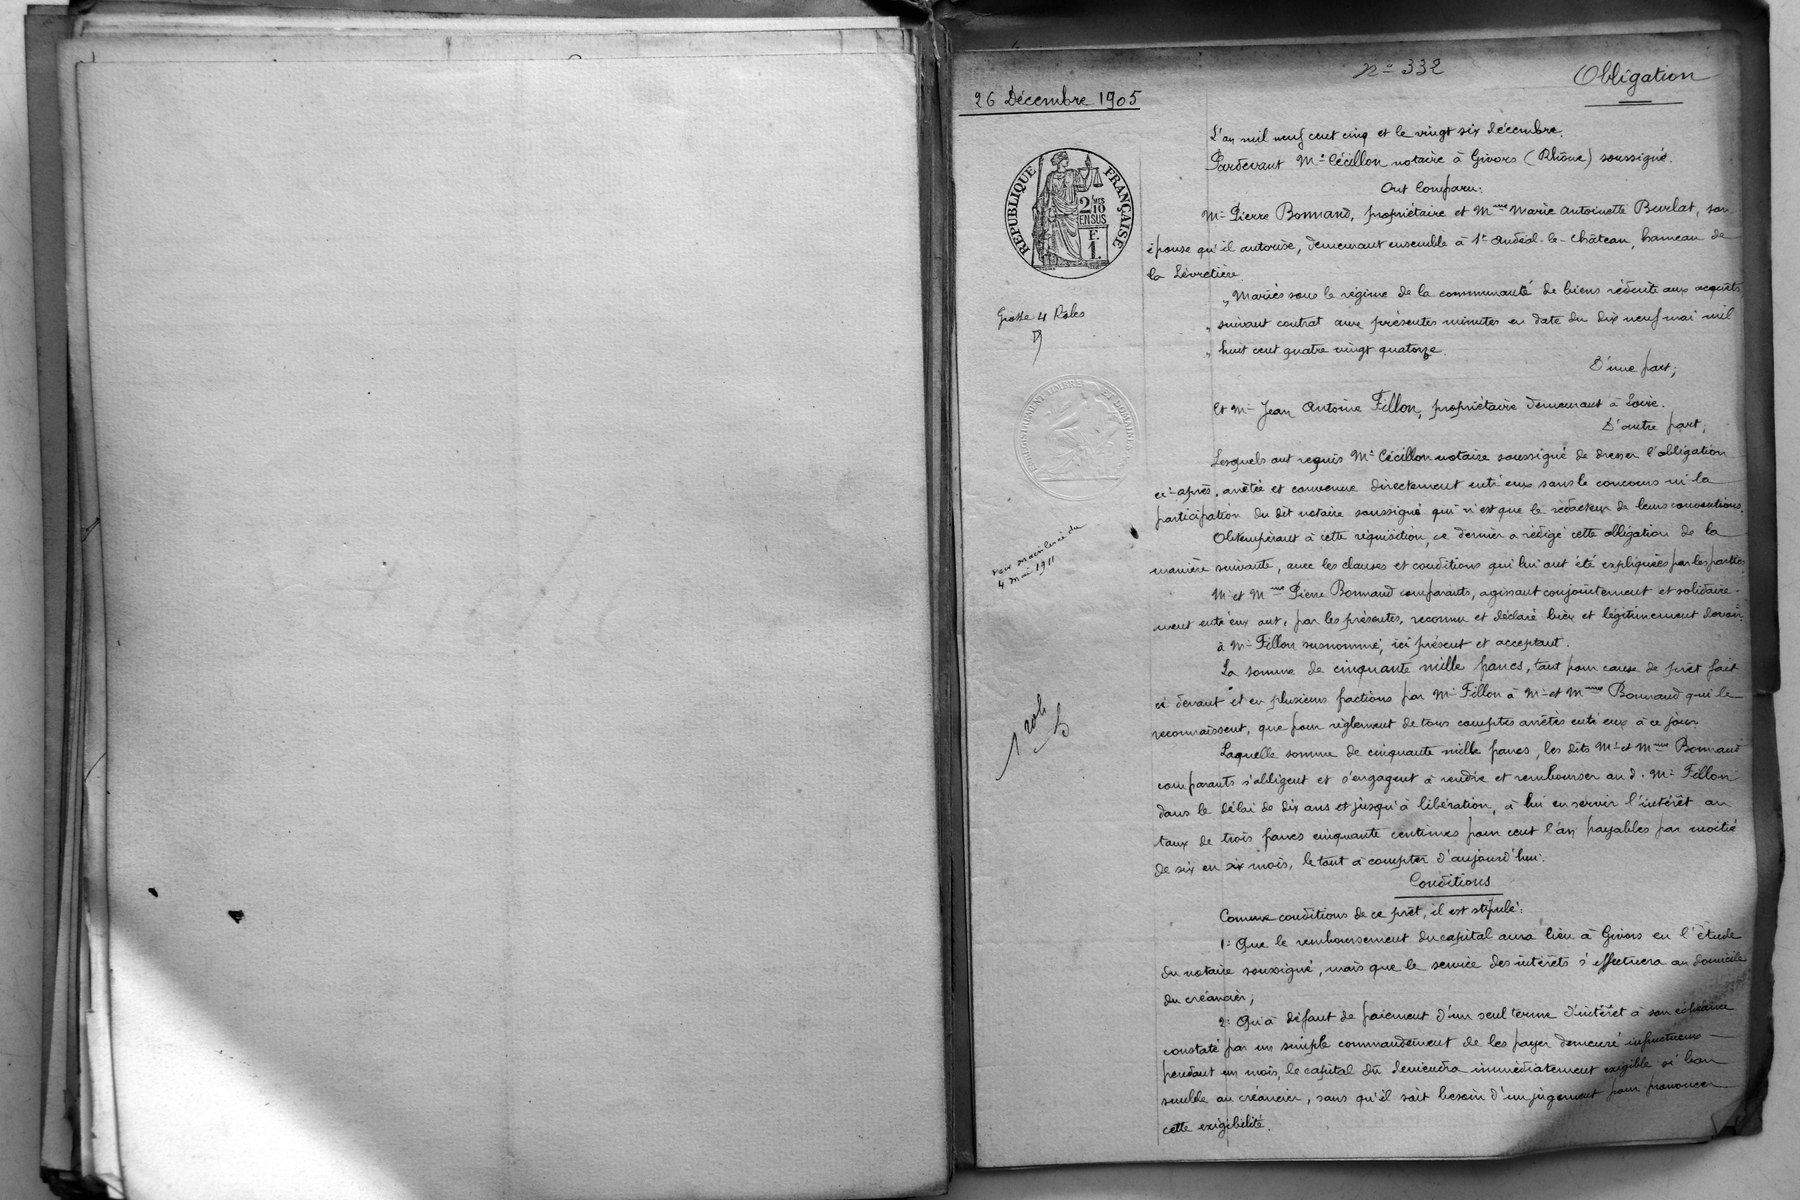 n° 332
Obligation
26 Décembre 1905
L'an mil neuf cent cinq et le vingt six décembre.
Pardevant Me Cécillon notaire à Givors (Rhône) soussigné.
Ont Comparu:
RÉPUBLIQUE FRANÇAISE
2/10mes
EN SUS
F.
1.
Mr Pierre Bonnand, propriétaire et Mme Marie Antoinette Burlat, son
épouse qu'il autorise, demeurant ensemble à St Andéol-le-Château, hameau de
la Lévretière.
" Mariés sous le régime de la communauté de biens réduite aux acquêts
Grosse 4 Rôles
" suivant contrat aux présentes minutes en date du dix neuf mai mil
" huit cent quatre vingt quatorze.
D'une part;
ENREGISTREMENT TIMBRE ET DOMAINES
Et Mr Jean Antoine Fillon, propriétaire demeurant à Loire.
D'autre part;
Lesquels ont requis Me Cécillon notaire soussigné de dresser l'obligation
ci-après, arrêtée et convenue directement entr'eux sans le concours ni la
participation du dit notaire soussigné qui n'est que le rédacteur de leurs conventions.
Obtempérant à cette réquisition, ce dernier a rédigé cette obligation de la
manière suivante, avec les clauses et conditions qui lui ont été expliquées par les parties.
4 mai 1911
Mr et Mme Pierre Bonnand comparants, agissant conjointement et solidaire-
ment entr'eux ont, par les présentes, reconnu et déclaré bien et légitimement devoir
à Mr Fillon susnommé, ici présent et acceptant.
La somme de cinquante mille francs, tant pour cause de prêt fait
ci devant et en plusieurs fractions par Mr Fillon à Mr et Mme Bonnand qui le
reconnaissent, que pour règlement de tous comptes arrêtés entr'eux à ce jour.
1 role
Laquelle somme de cinquante mille francs, les dits Mr et Mme Bonnand
comparants s'obligent et s'engagent à rendre et rembourser au d. Mr Fillon
dans le délai de dix ans et jusqu'à libération, à lui en servir l'intérêt au
taux de trois francs cinquante centimes pour cent l'an payables par moitié
de six en six mois, le tout à compter d'aujourd'hui.
Conditions
Comme conditions de ce prêt, il est stipulé:
1° Que le remboursement du capital aura lieu à Givors en l'étude
du notaire soussigné, mais que le service des intérêts s'effectuera au domicile
du créancier;
2° Qu'à défaut de paiement d'un seul terme d'intérêt à son échéance
constaté par un simple commandement de les payer demeuré infructueux
pendant un mois, le capital dû deviendra immédiatement exigible si bon
semble au créancier, sans qu'il soit besoin d'un jugement pour prononcer
cette exigibilité.